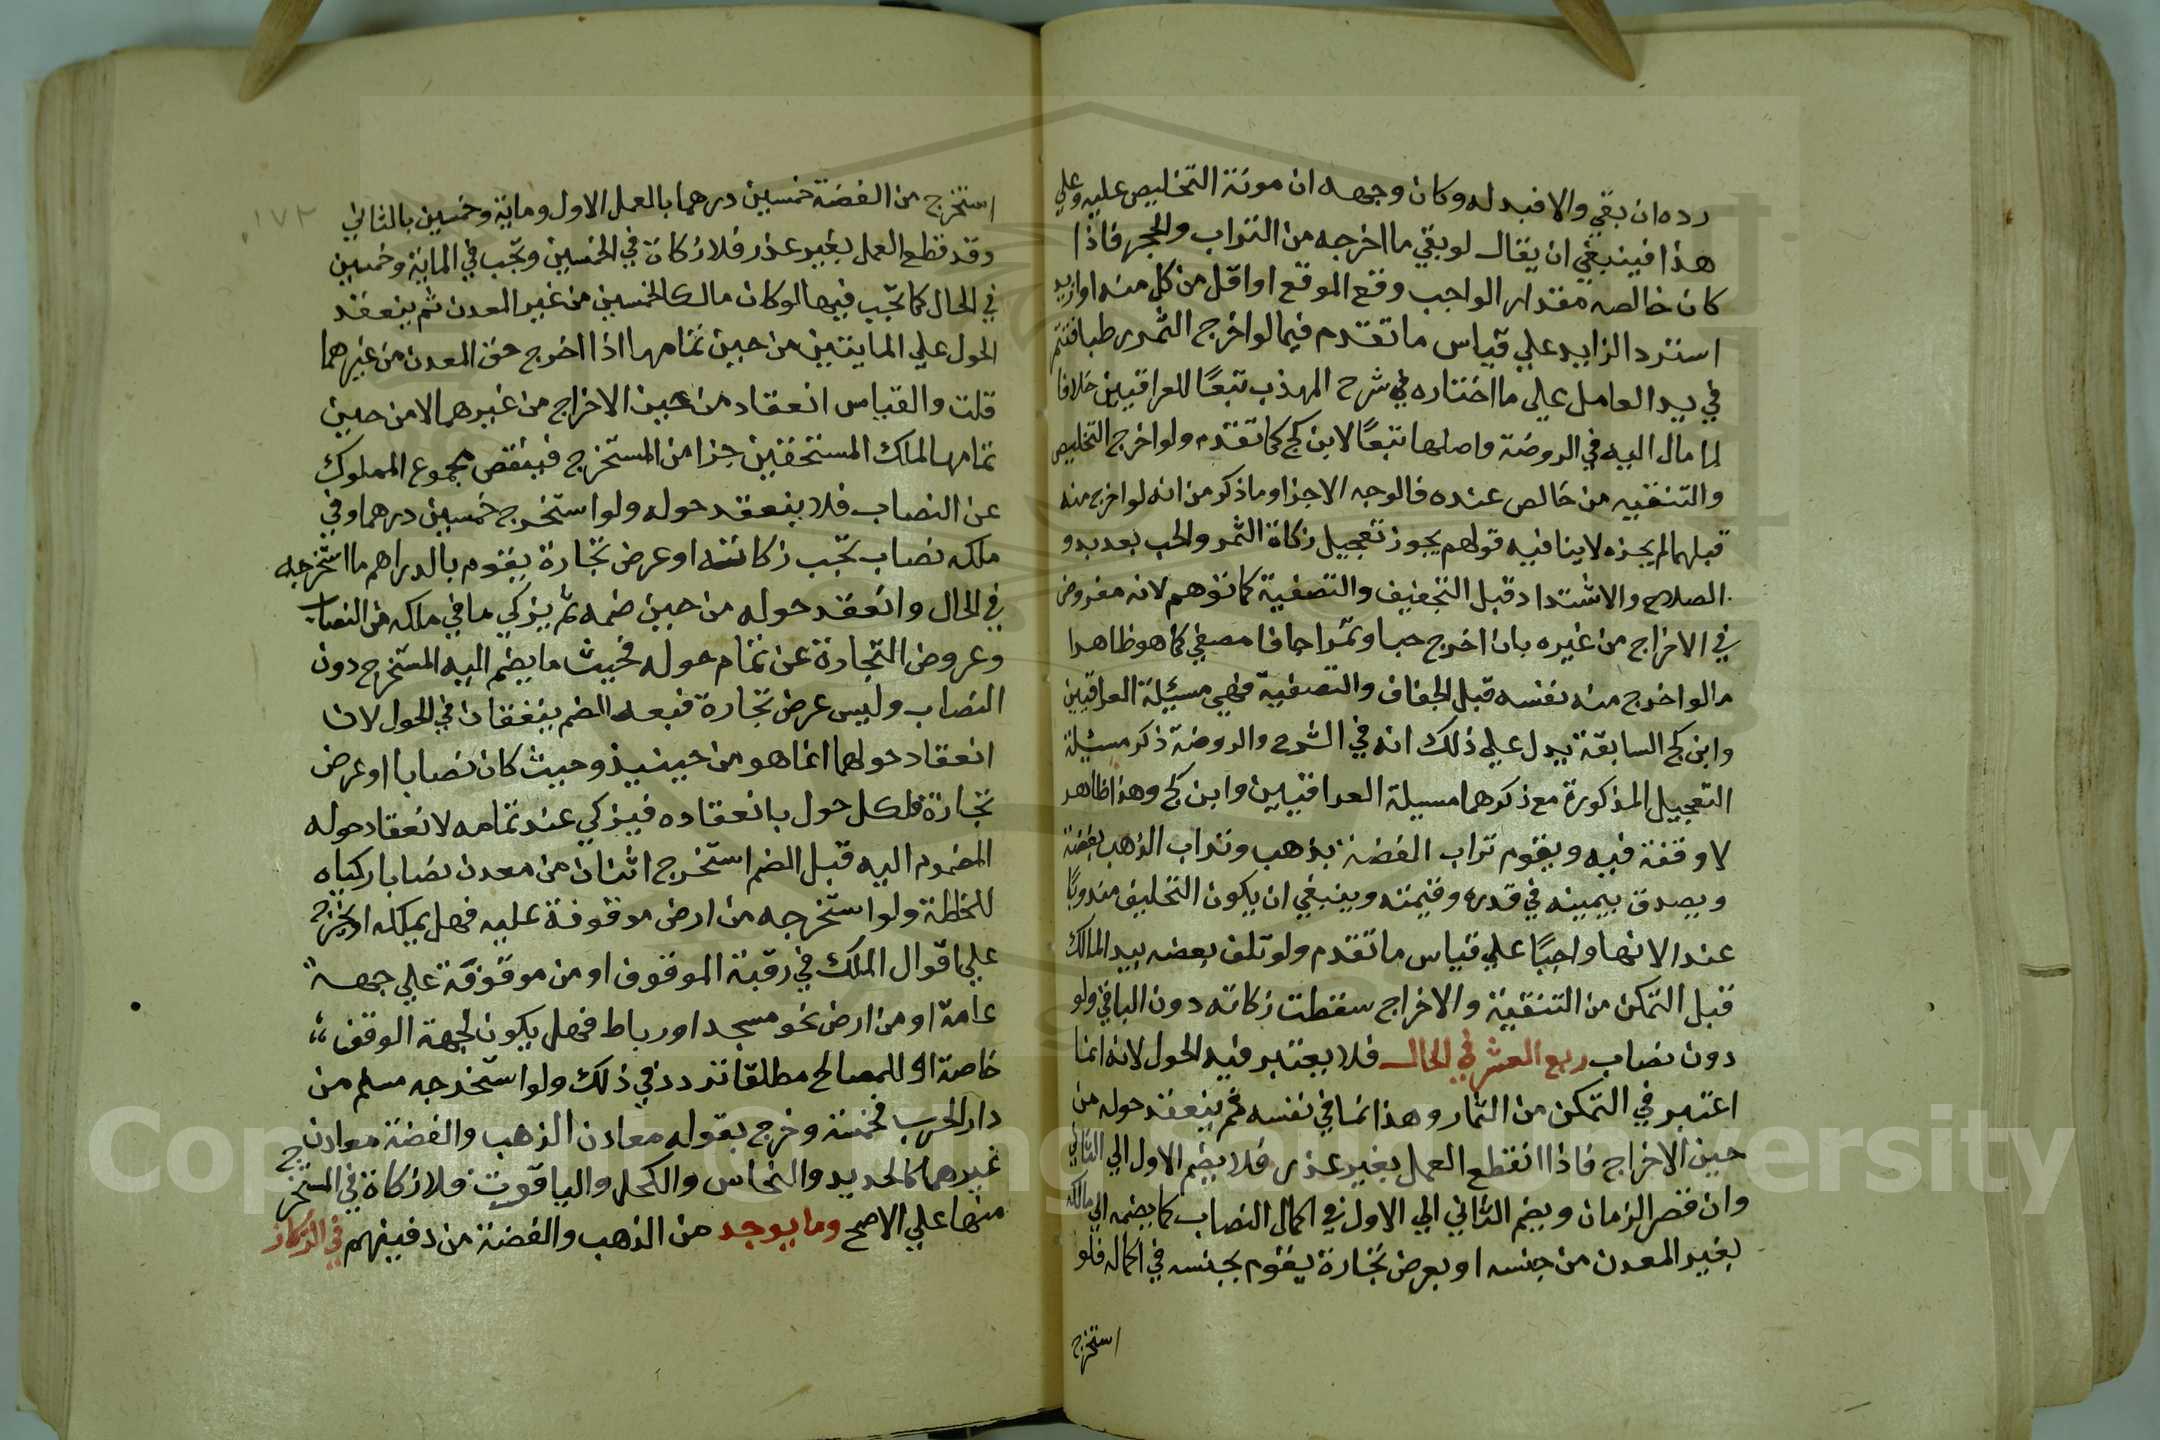 رده ان بقي والا فبدله وكان وجهه ان مونة التخليص عليه وعلي
هذا فينبغي ان يقال لو بقي ما اخرجه من التراب والحجر فاذا
كان خالصه مقدار الواجب وقع الموقع او اقل من كل منه او ازيد
استرد الزايد علي قياس ما تقدم فيما لو اخرج الثمر رطبا فتتم
في يد العامل علي ما اختاره في شرح المهذب تبعًا للعراقيين خلافا
لما مال اليه في الروضة واصلها تبعًا لابن كج كما تقدم ولو اخرج التخليص
والتنقيه من خالص عنده فالوجه الاجزا وما ذكر من انه لو اخرج منه
قبلهما لم يجزه لا ينافيه قولهم يجوز تعجيل زكاة الثمر والحب بعد بدو
الصلاح والاشتداد قبل التجفيف والتصفية كما توهم لانه مفروض
في الاخراج من غيره بان اخرج حبا وتمرا جافا مصفي كما هو ظاهرا
مالو اخرج منه نفسه قبل الجفاف والتصفية فهي مسيلة العراقيين
وابن كج السابقة يدل علي ذلك انه في الشرح والروضة ذكر مسيلة
التعجيل المذكورة مع ذكرهما مسيلة العراقيين وابن كج وهذا ظاهر
لا وقفة فيه ويقوم تراب الفضة بذهب وتراب الذهب بفضة
ويصدق بيمينه في قدره وقيمته وينبغي ان يكون التحليف مندوبًا
عند الانها واجبًا علي قياس ما تقدم ولو تلف بعضه بيد المالك
قبل التمكن من التنقية والاخراج سقطت زكاته دون الباقي ولو
دون نصاب ربع العشر في الحال فلا يعتبر فيه الحول لانه انما
اعتبر في التمكن من الثمار وهذا نما في نفسه ثم ينعقد حوله من
حين الاخراج فاذا انقطع العمل بغير عذر فلا يضم الاول الي الثاني
وان قصر الزمان ويضم الثاني الي الاول في اكمال النصاب كما يضمه الي مالكه
بغير المعدن من جنسه او بعرض تجارة يقوم بجنسه في اكماله فلو
استخرج
١٧٢
استخرج من الفضة خمسين درهما بالعمل الاول وماية وخمسين بالثاني
وقد قطع العمل بغير عذر فلا زكاة في الخمسين وتجب في الماية وخمسين
في الحال كما تجب فيها لو كان مالك الخمسين من غير المعدن ثم ينعقد
الحول علي المايتين من حين تمامها اذا اخرج حق المعدن من غيرهما
قلت والقياس انعقاد من حين الاخراج من غيرهما لا من حين
تمامها لملك المستحقين جزا من المستخرج فينقص مجموع المملوك
عن النصاب فلا ينعقد حوله ولو استخرج خمسين درهما وفي
ملكه نصاب تجب زكاته او عرض تجارة يقوم بالدراهم ما استخرجه
في الحال وانعقد حوله من حين ضمه ثم يزكي ما في ملكه من النصاب
وعروض التجارة عن تمام حوله فحيث ما يضم اليه المستخرج دون
النصاب وليس عرض تجارة فبعد الضم يتفقان في الحول لان
انعقاد حولهما انما هو من حينيذ وحيث كان نصابا او عرض
تجارة فلكل حول بانعقاده فيزكي عند تمامه لانعقاد حوله
المضموم اليه قبل الضم استخرج اثنان من معدن نصابا زكياه
للخلطة ولو استخرجه من ارض موقوفة عليه فهل يملكه او يخرج
علي اقوال الملك في رقبة الموقوف او من موقوفة علي جهة
عامة او من ارض نحو مسجد او رباط فهل يكون لجهة الوقف
خاصة او للمصالح مطلقا تردد في ذلك ولو استخرجه مسلم من
دار الحرب فخمسه وخرج بقوله معادن الذهب والفضة معادن
غيرهما كالحديد والنحاس والكحل والياقوت فلا زكاة في المستخرج
منها علي الاصح وما يوجد من الذهب والفضة من دفينهم في الركاز
Copyright © King Saud University